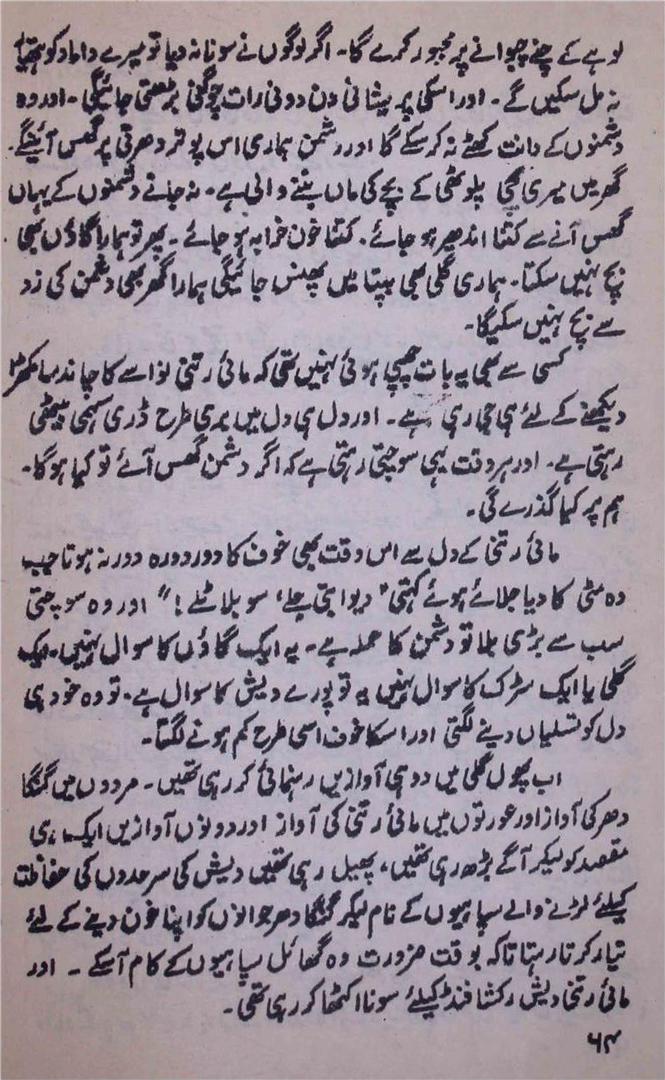 لوہے کے چنے چبوانے پر مجبور کرے گا۔ اگر لوگوں نے سونا نہ دیا تو میرے داماد کو ہتھیار
نہ مل سکیں گے۔ اور اسکی پریشانی دن دونی رات چوگنی بڑھتی جائیگی۔ اور وہ
دشمنوں کے دانت کھٹے نہ کر سکے گا اور دشمن ہماری اس پوتر دھرتی پر گھس آئینگے۔
گھر میں میری بچی پلوٹھی کے بچے کی ماں بننے والی ہے۔ نہ جانے دشمنوں کے یہاں
گھس آنے سے کتنا اندھیر ہو جائے۔ کتنا خون خرابہ ہو جائے۔ پھر تو ہمارا گاؤں بھی
بچ نہیں سکتا۔ ہماری گلی بھی بپتا میں پھنس جائیگی ہمارا گھر بھی دشمن کی زد
سے بچ نہیں سکیگا۔
کسی سے بھی یہ بات چھپی ہوئی نہیں تھی کہ مائی رتنی نواسے کا چاند سا مکھڑا
دیکھنے کے لئے ہی جی رہی ہے۔ اور دل ہی دل میں بری طرح ڈری سہمی بیٹھی
رہتی ہے۔ اور ہر وقت یہی سوچتی رہتی ہے کہ اگر دشمن گھس آئے تو کیا ہوگا۔
ہم پر کیا گذرے گی۔
مائی رتنی کے دل سے اس وقت بھی خوف کا دور دورہ دور نہ ہوتا جب
وہ مٹی کا دیا جلائے ہوئے کہتی "دیوا بتی جلے، سو بلا ٹلے!" اور وہ سوچتی
سب سے بڑی بلا تو دشمن کا حملہ ہے۔ یہ ایک گاؤں کا سوال نہیں۔ ایک
گلی یا ایک سڑک کا سوال نہیں یہ تو پورے دیش کا سوال ہے۔ تو وہ خود ہی
دل کو تسلیاں دینے لگتی اور اسکا خوف اسی طرح کم ہونے لگتا۔
اب پھول گلی میں دو ہی آوازیں رہنمائی کر رہی تھیں۔ مردوں میں گنگا
دھر کی آواز اور عورتوں میں مائی رتنی کی آواز اور دونوں آوازیں ایک ہی
مقصد کو لیکر آگے بڑھ رہی تھیں، پھیل رہی تھیں دیش کی سرحدوں کی حفاظت
کیلئے لڑنے والے سپاہیوں کے نام لیکر گنگا دھر جوانوں کو اپنا خون دینے کے لئے
تیار کرتا رہتا تاکہ بوقت ضرورت وہ گھائل سپاہیوں کے کام آسکے۔ اور
مائی رتنی دیش رکشا فنڈ کیلئے سونا اکٹھا کر رہی تھی۔
۶۴